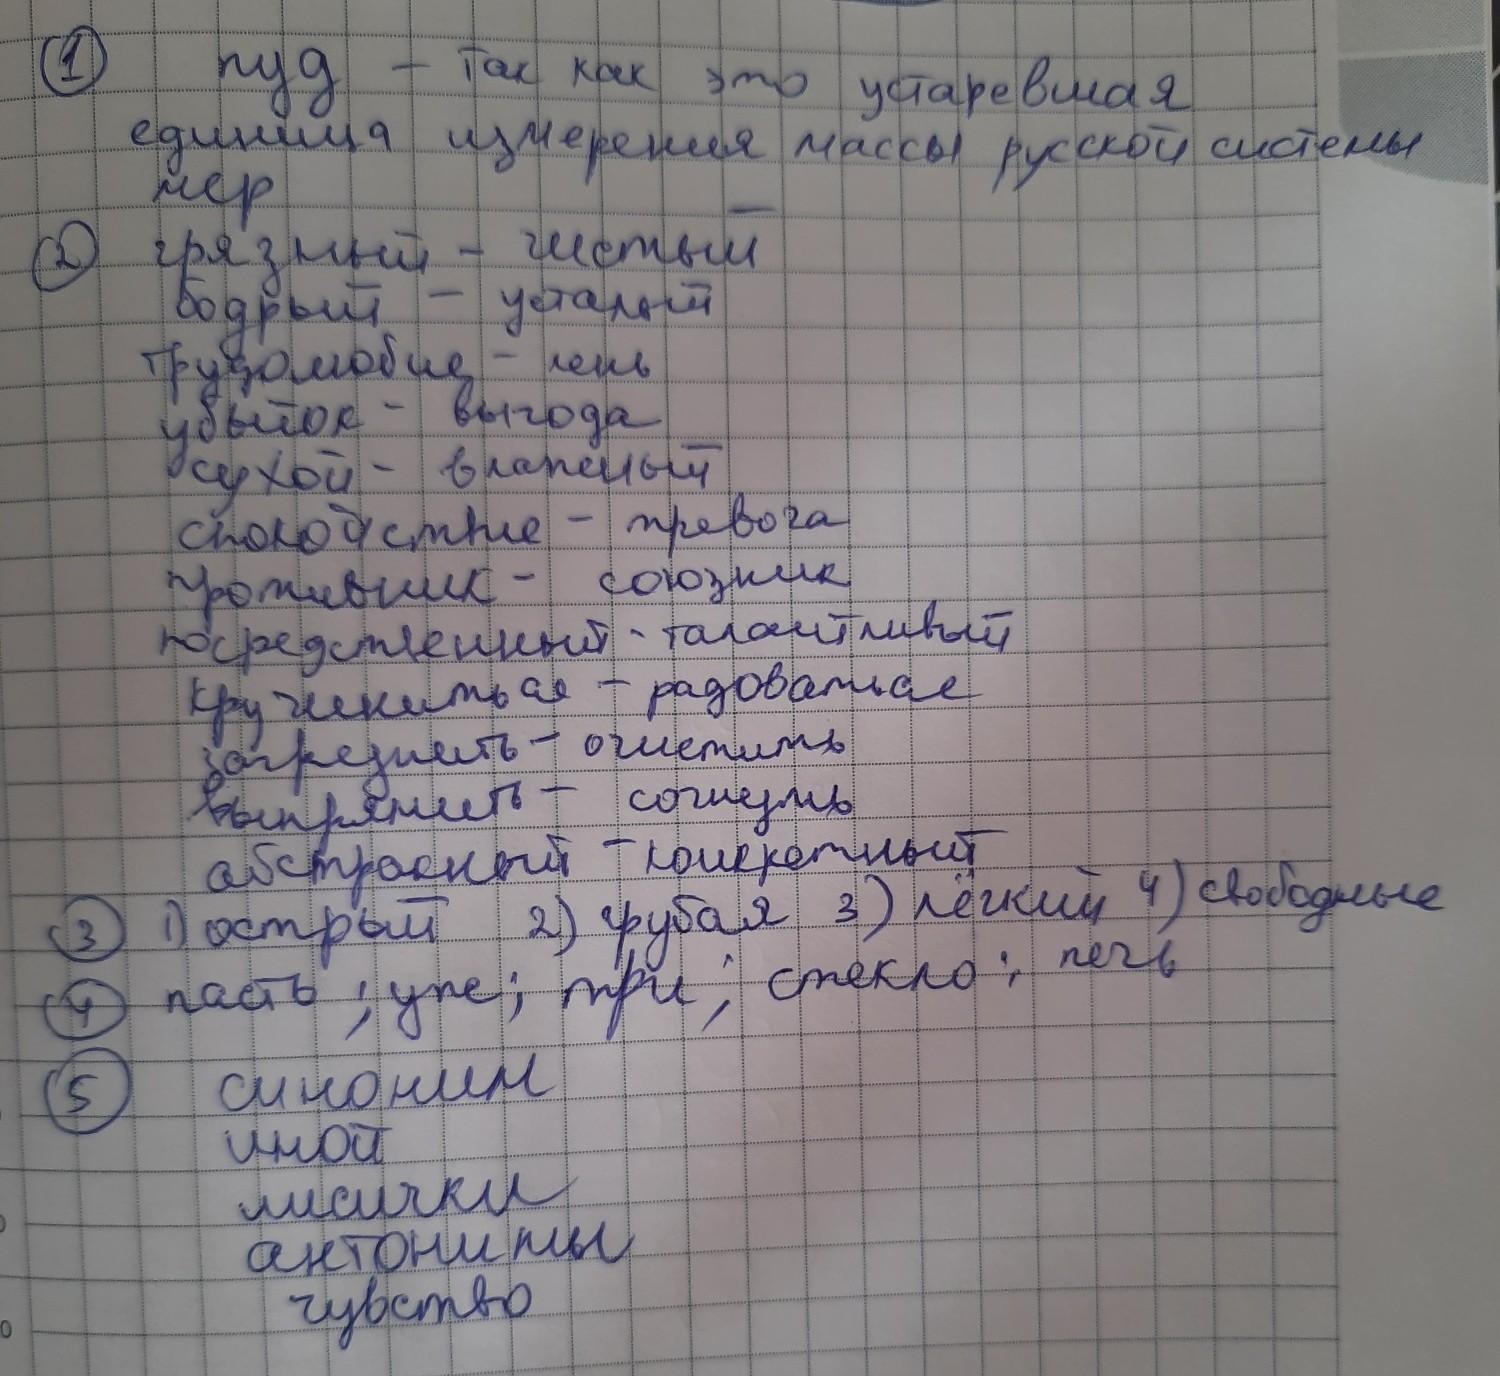 1 пуд – так как это устаревшая
единица измерения массы русской системы
мер
2 грязный – чистый
бодрый – усталый
трудолюбие – лень
убыток – выгода
сухой – влажный
спокойствие – тревога
противник – союзник
посредственный - талантливый
кручиниться – радоваться
загрезнить – очистить
выпрямить – согнуть
абстракный – конкретный
3 1) острый 2) грубая 3) лёгкий 4) свободные
4 пасть ; уже ; три ; стекло ; печь
5 синоним
иной
лисички
антонимы
чувство